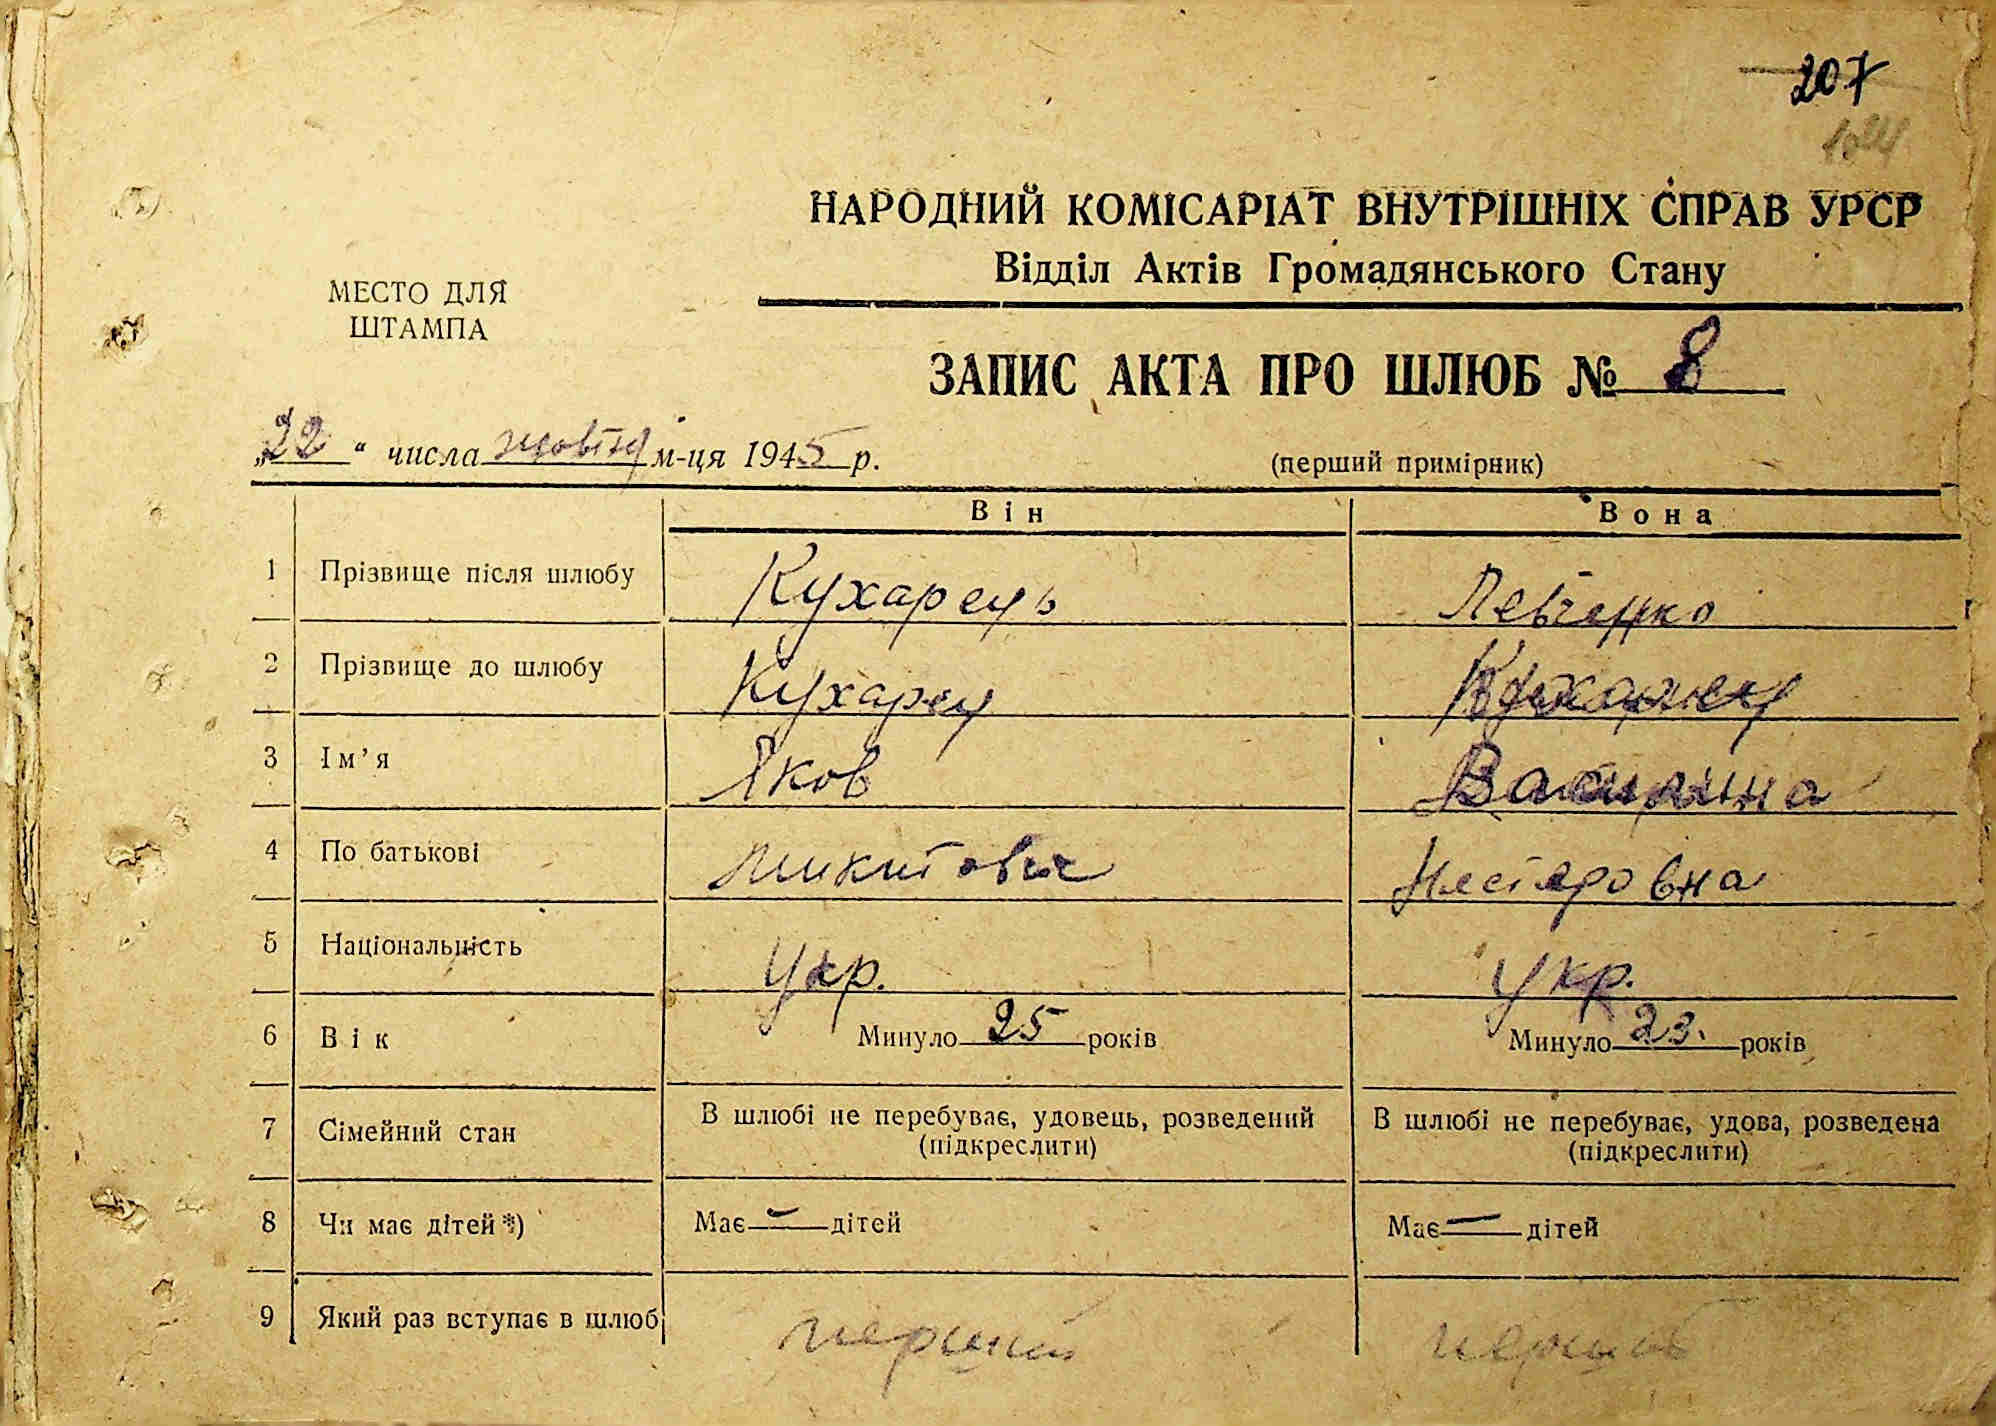 207
НАРОДНИЙ КОМІСАРІАТ ВНУТРІШНІХ СПРАВ УРСР
Відділ Актів Громадянського Стану
МЕСТО ДЛЯ
ШТАМПА
ЗАПИС АКТА ПРО ШЛЮБ № 8
„22“ числа м-ця 1945 р.
(перший примірник)
Він Вона
1 Прізвище після шлюбу Кухарець Левченко
2 Прізвище до шлюбу Кухарец
3 Ім'я Яков
4 По батькові Микитович Нестеровна
5 Національність Укр. Укр.
6 Вік Минуло 25 років Минуло 23. років
7 Сімейний стан В шлюбі не перебуває, удовець, розведений (підкреслити) В шлюбі не перебуває, удова, розведена (підкреслити)
8 Чи має дітей *) Має — дітей Має — дітей
9 Який раз вступає в шлюб перший перший